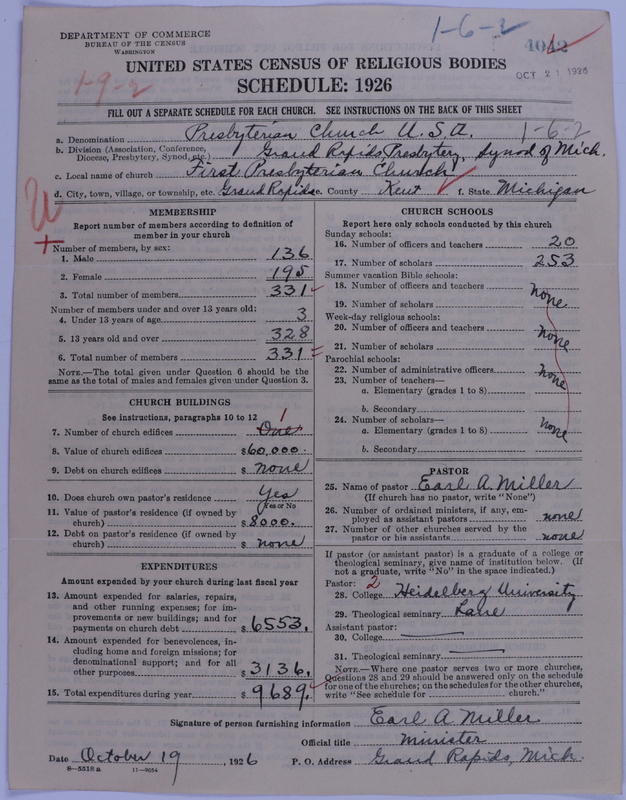 DEPARTMENT OF COMMERCE
BUREAU OF THE CENSUS
WASHINGTON
1-6-2
OCT 21 1926
1-9-2
UNITED STATES CENSUS OF RELIGIOUS BODIES
SCHEDULE: 1926
FILL OUT A SEPARATE SCHEDULE FOR EACH CHURCH. SEE INSTRUCTIONS ON THE BACK OF THIS SHEET
a. Denomination Presbyterian Church U.S.A. 1-6-2
b. Division (Association, Conference, Diocese, Presbytery, Synod, etc.) Grand Rapids Presbytery, Synod of Mich.
c. Local name of church First Presbyterian Church
d. City, town, village, or township, etc. Grand Rapids e. County Kent f. State Michigan
MEMBERSHIP
Report number of members according to definition of
member in your church
Number of members, by sex:
1. Male 136
2. Female 195
3. Total number of members 331
Number of members under and over 13 years old:
4. Under 13 years of age 3
5. 13 years old and over 328
6. Total number of members 331
NOTE.—The total given under Question 6 should be the
same as the total of males and females given under Question 3.
CHURCH BUILDINGS
See instructions, paragraphs 10 to 12
7. Number of church edifices One 1
8. Value of church edifices $60,000.
9. Debt on church edifices $ none
10. Does church own pastor's residence Yes
Yes or No
11. Value of pastor's residence (if owned by
church) $8000.
12. Debt on pastor's residence (if owned by
church) $ none
EXPENDITURES
Amount expended by your church during last fiscal year
13. Amount expended for salaries, repairs,
and other running expenses; for im-
provements or new buildings; and for
payments on church debt $6553.
14. Amount expended for benevolences, in-
cluding home and foreign missions; for
denominational support; and for all
other purposes $3136.
15. Total expenditures during year $9689.
CHURCH SCHOOLS
Report here only schools conducted by this church
Sunday schools:
16. Number of officers and teachers 20
17. Number of scholars 253
Summer vacation Bible schools:
18. Number of officers and teachers none
19. Number of scholars
Week-day religious schools:
20. Number of officers and teachers none
21. Number of scholars
Parochial schools:
22. Number of administrative officers none
23. Number of teachers—
a. Elementary (grades 1 to 8)
b. Secondary
24. Number of scholars— none
a. Elementary (grades 1 to 8)
b. Secondary
PASTOR
25. Name of pastor Earl A. Miller
(If church has no pastor, write "None")
26. Number of ordained ministers, if any, em-
ployed as assistant pastors none
27. Number of other churches served by the
pastor or his assistants none
If pastor (or assistant pastor) is a graduate of a college or
theological seminary, give name of institution below. (If
not a graduate, write "No" in the space indicated.)
Pastor: 2
28. College Heidelberg University
29. Theological seminary Lane
Assistant pastor:
30. College
31. Theological seminary
NOTE.—Where one pastor serves two or more churches,
Questions 28 and 29 should be answered only on the schedule
for one of the churches; on the schedules for the other churches,
write "See schedule for church."
Signature of person furnishing information Earl A. Miller
Official title Minister
Date October 19, 1926 P. O. Address Grand Rapids, Mich.
8—5518 a 11—9054